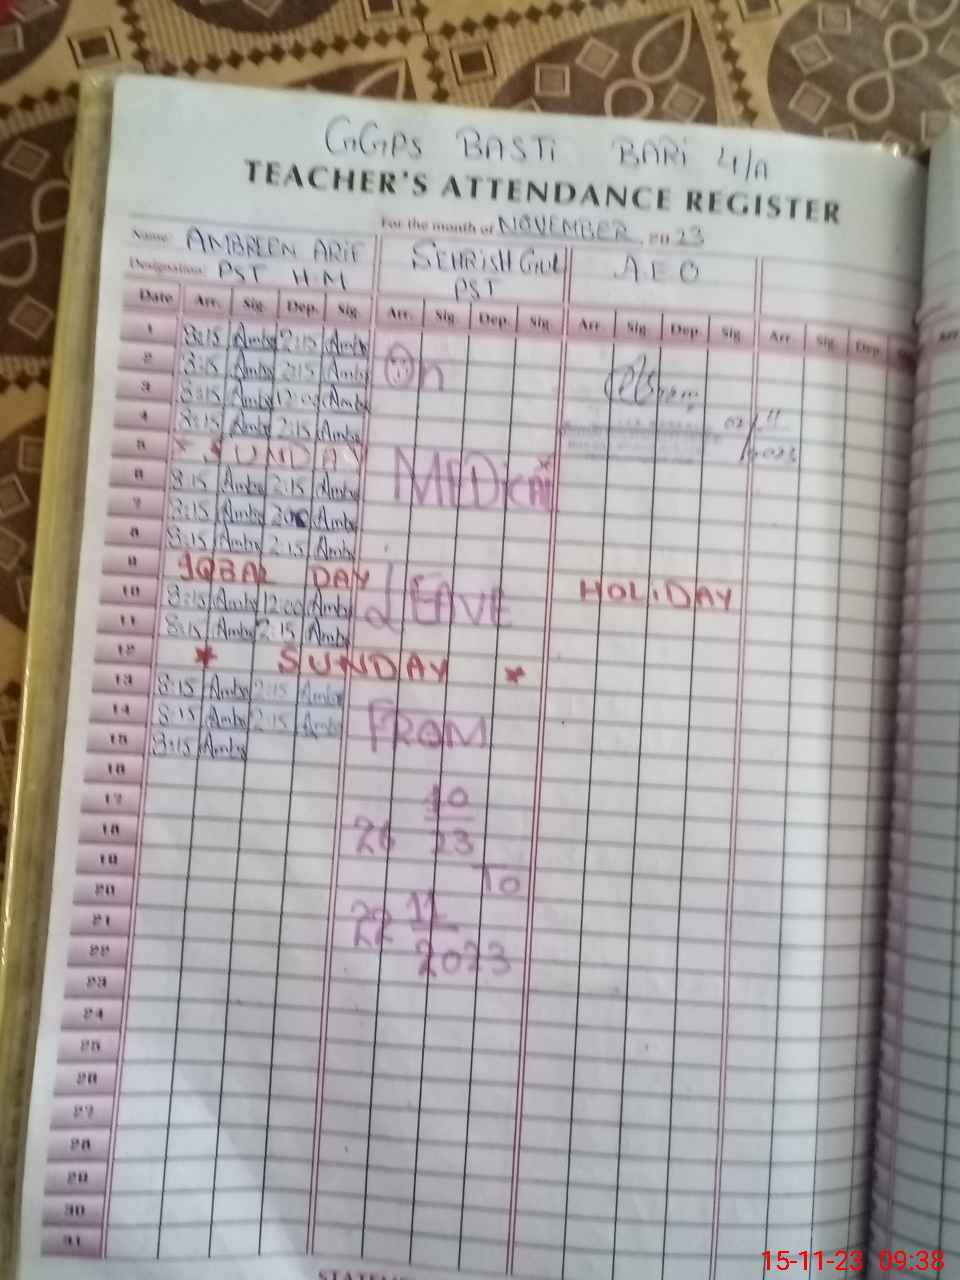 GGPS BASTI BARI 4/A
TEACHER'S ATTENDANCE REGISTER
For the month of NOVEMBER 2023
Name: AMBREEN ARIF SEHRISH GUL A.E.O
Designation: PST H.M PST
Date Arr. Sig. Dep. Sig. Arr. Sig. Dep. Sig. Arr. Sig. Dep. Sig. Arr. Sig. Dep.
1 8:15 Amby 2:15 Amby
2 8:15 Amby 2:15 Amby On
3 8:15 Amby Amby
4 8:15 Amby 2:15 Amby
5 * SUNDAY
6 8:15 Amby 2:15 Amby MEDiCAl
7 8:15 Amby Amby
8 8:15 Amby 2:15 Amby
9 IQBAL DAY HOLiDAY
10 8:15 Amby 12:00 Amby LEAVE
11 8:15 Amby 2:15 Amby
12 * SUNDAY *
13 8:15 Amby 2:15 Amby
14 8:15 Amby 2:15 Amby FROM
15 8:15 Amby
16
17 10
18 26 23
19 To
20
21 22 11
22 2023
23
24
25
26
27
28
29
30
31
15-11-23 09:38